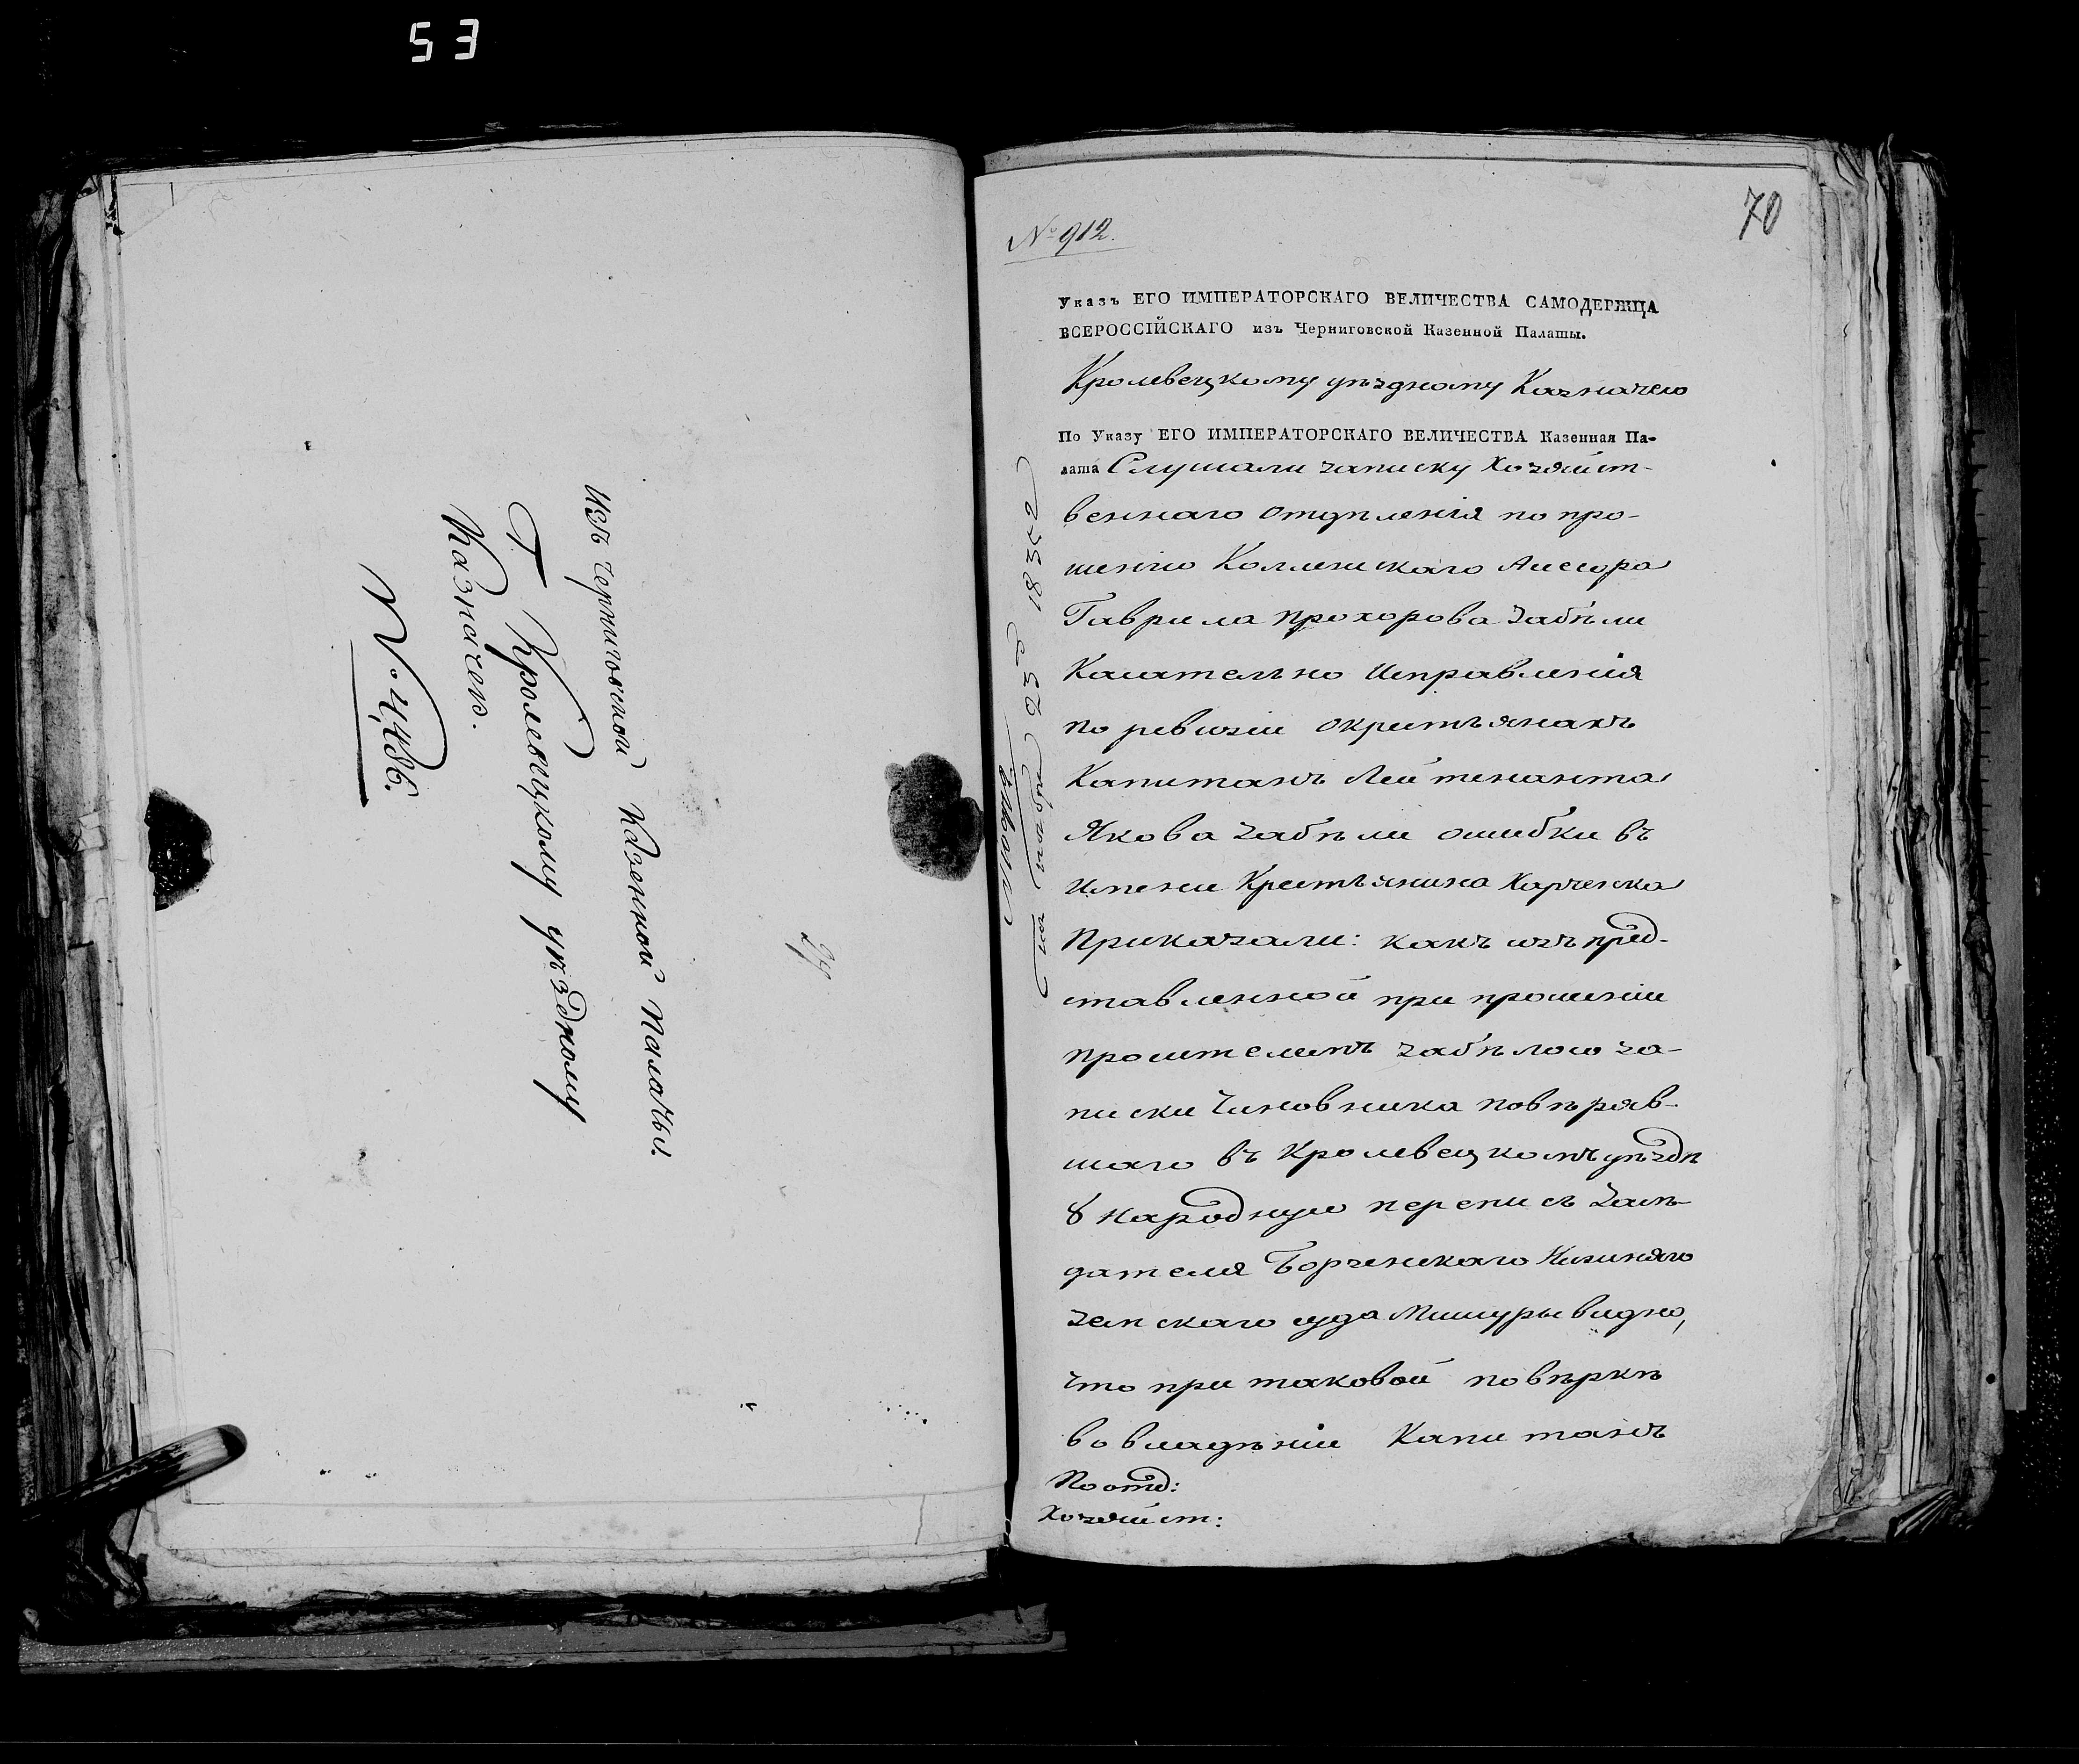 53
Изъ Черниговской Казенной Палаты.
Г. Кролевецкому уѣздному
Казначею.
№ 4,486.
70
№ 912.
Указъ ЕГО ИМПЕРАТОРСКАГО ВЕЛИЧЕСТВА САМОДЕРЖЦА
ВСЕРОССІЙСКАГО изъ Черниговской Казенной Палаты.
Кролевецкому уѣздному Казначею
По Указу ЕГО ИМПЕРАТОРСКАГО ВЕЛИЧЕСТВА Казенная Па-
лата Слушали записку Хозяйст-
веннаго отдѣленія по про-
шенію Коллежскаго Ассесора
Гаврила Прохорова Забѣли
Касательно Исправленія
по ревизіи окрестьянахъ
Капитанъ Лейтенанта
Якова Забѣли ошибки въ
имени Крестьянина Харченка
Приказали: какъ изъ пред-
ставленной при прошеніи
просителемъ Забѣлою за-
писки Чиновника повѣряв-
шаго въ Кролевецкомъ уѣздѣ
8 народную перепись Засѣ-
дателя Борзенскаго Нижняго
Земскаго суда Мишуры видно,
что при таковой повѣркѣ
во владѣніи Капитанъ
По отд:
Хозяйст: